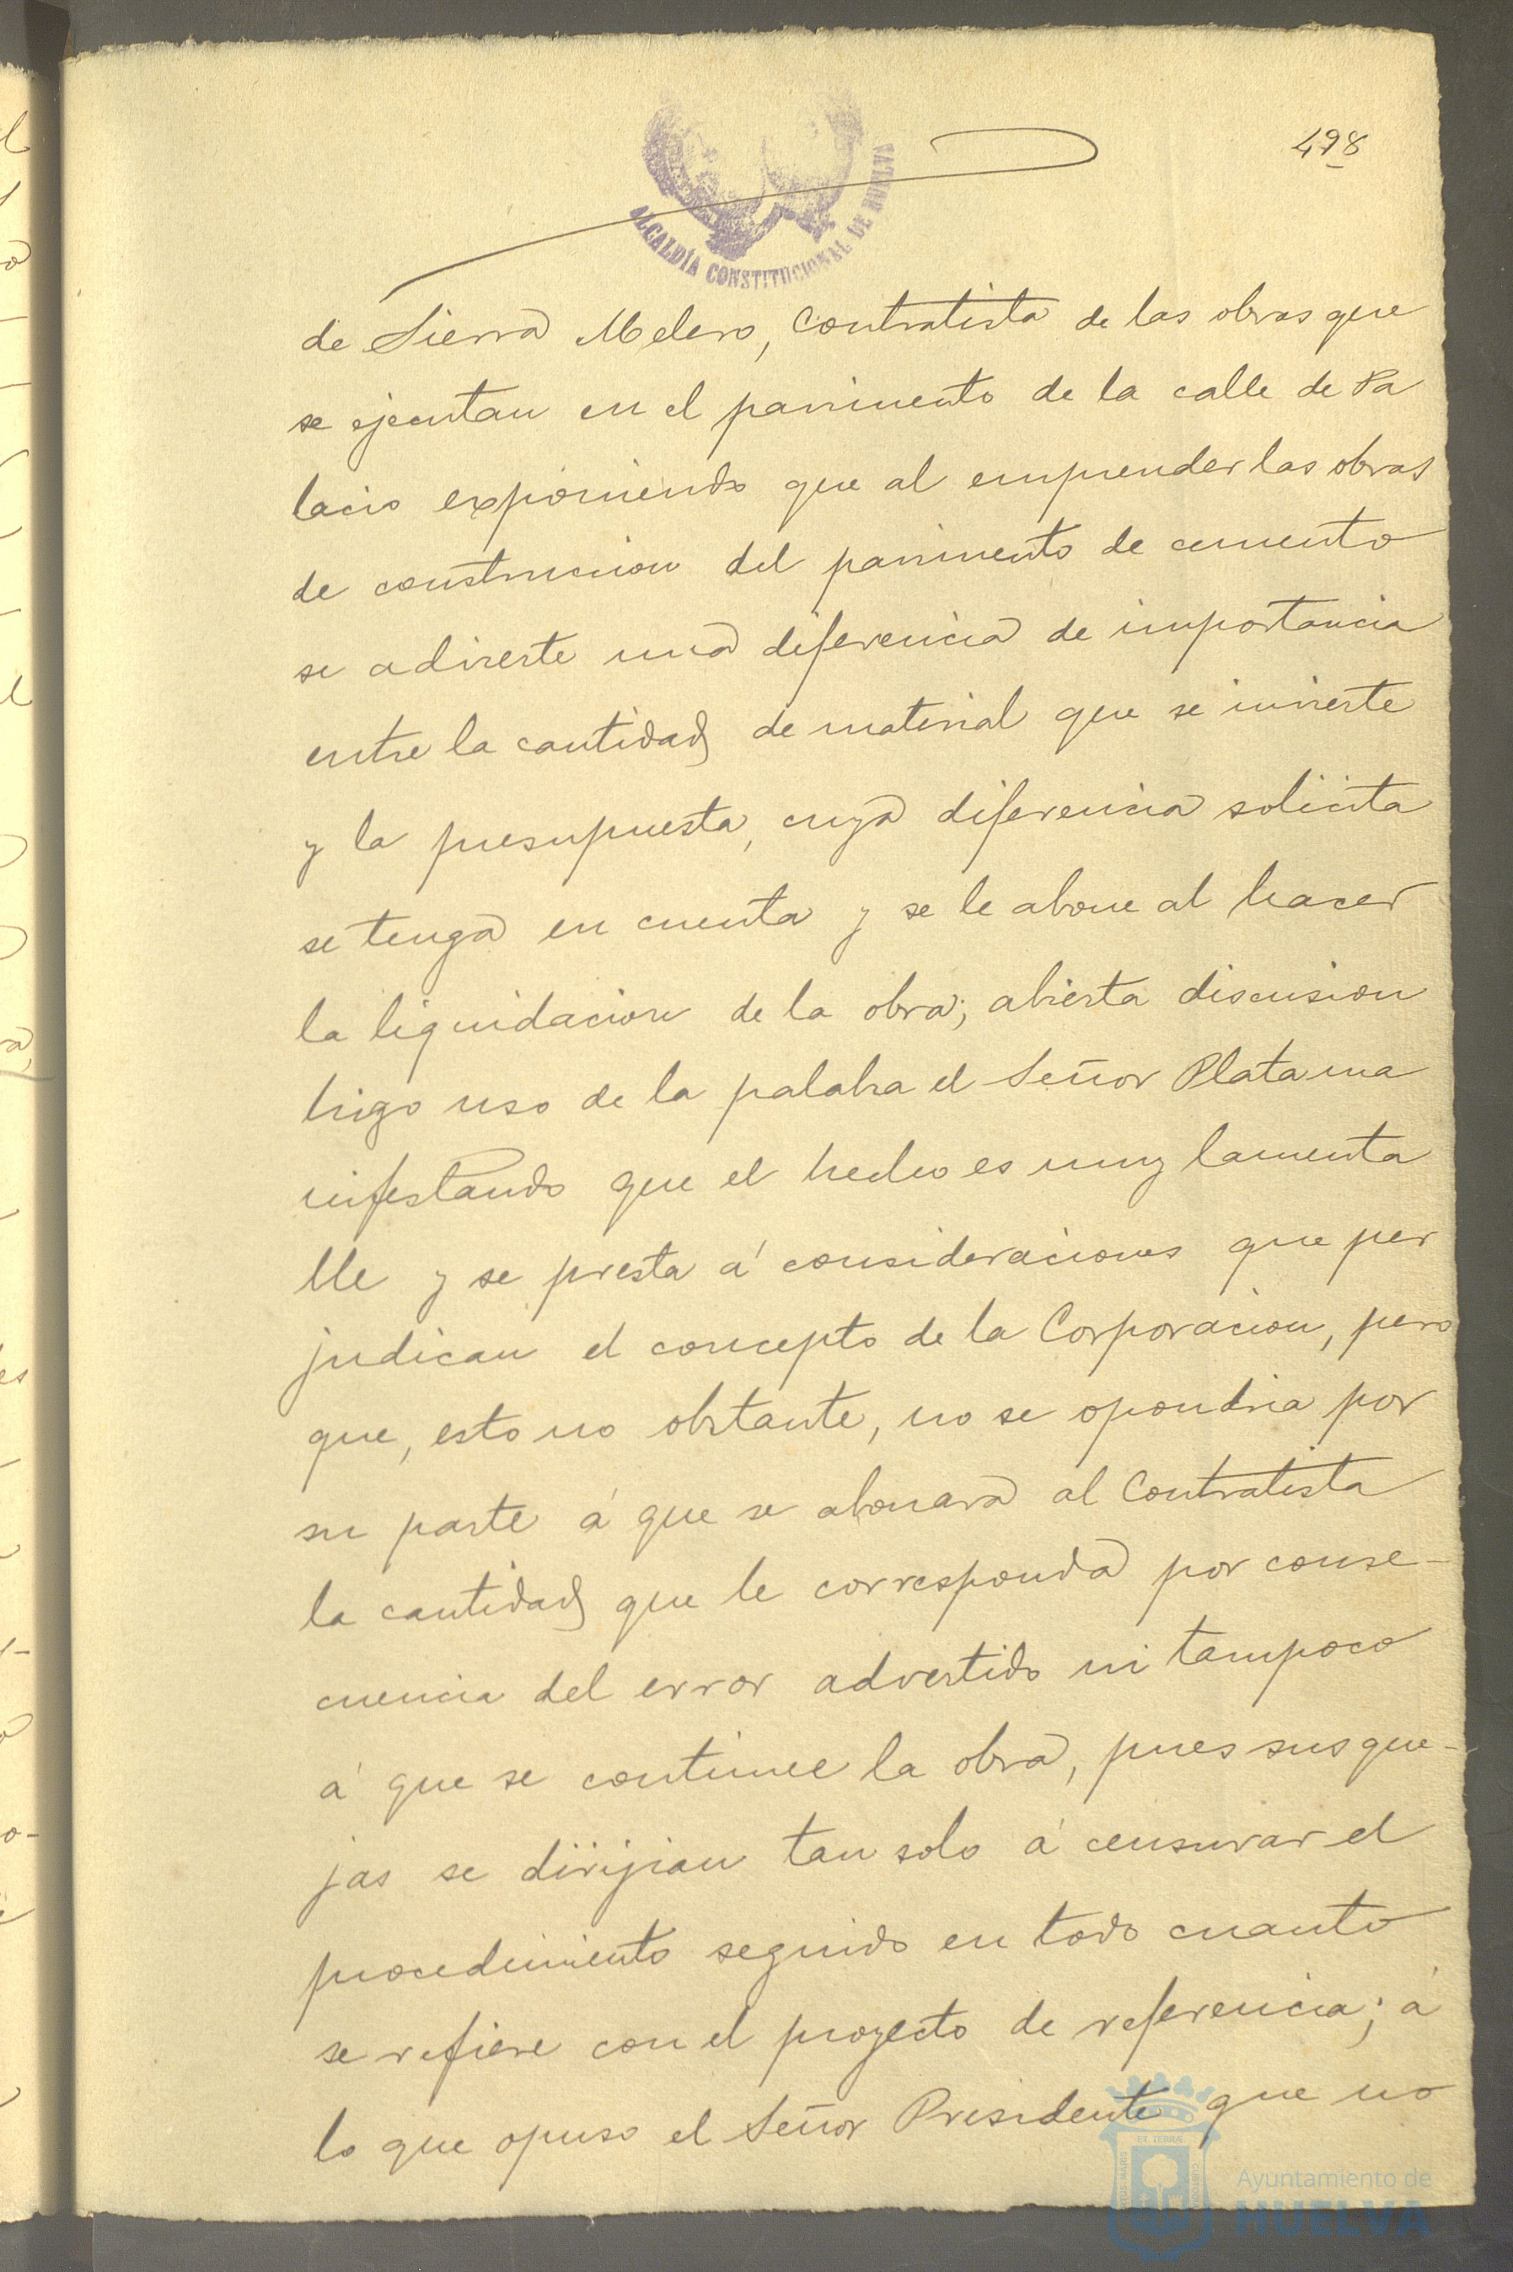 498
ALCALDÍA CONSTITUCIONAL DE HUELVA
de Sierra Melero, Contratista de las obras que
se ejecutan en el pavimento de la calle de Pa
lacio exponiendo que al emprender las obras
de construccion del pavimento de cemento
se advierte una diferencia de importancia
entre la cantidad de material que se invierte
y la presupuesta, cuya diferencia solicita
se tenga en cuenta y se le abone al hacer
la liquidacion de la obra; abierta discusion
hizo uso de la palabra el Señor Plata ma
nifestando que el hecho es muy lamenta
ble y se presta á consideraciones que per
judican el concepto de la Corporacion, pero
que, esto no obstante, no se opondria por
su parte á que se abonara al Contratista
la cantidad que le corresponda por conse-
cuencia del error advertido ni tampoco
á que se continue la obra, pues sus que-
jas se dirijian tan solo á censurar el
procedimiento seguido en todo cuanto
se refiere con el proyecto de referencia; á
lo que opuso el Señor Presidente que no
Ayuntamiento de
HUELVA